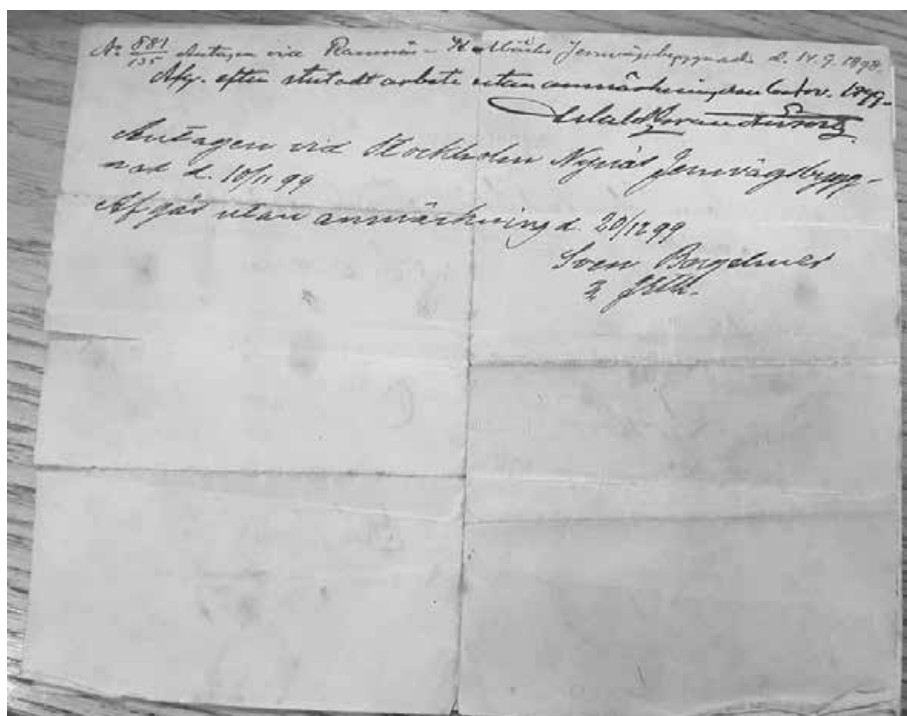 No 881/135 Antagen vid Ramnäs - Jernvägsbyggnad d. 14.9.1898.
Afg. efter slutadt arbete utan anmärkning den nov. 1899.
Antagen vid Stockholm Nynäs Jernvägsbygg-
nad d. 10/11 99
Afgår utan anmärkning d. 20/12 99
Sven